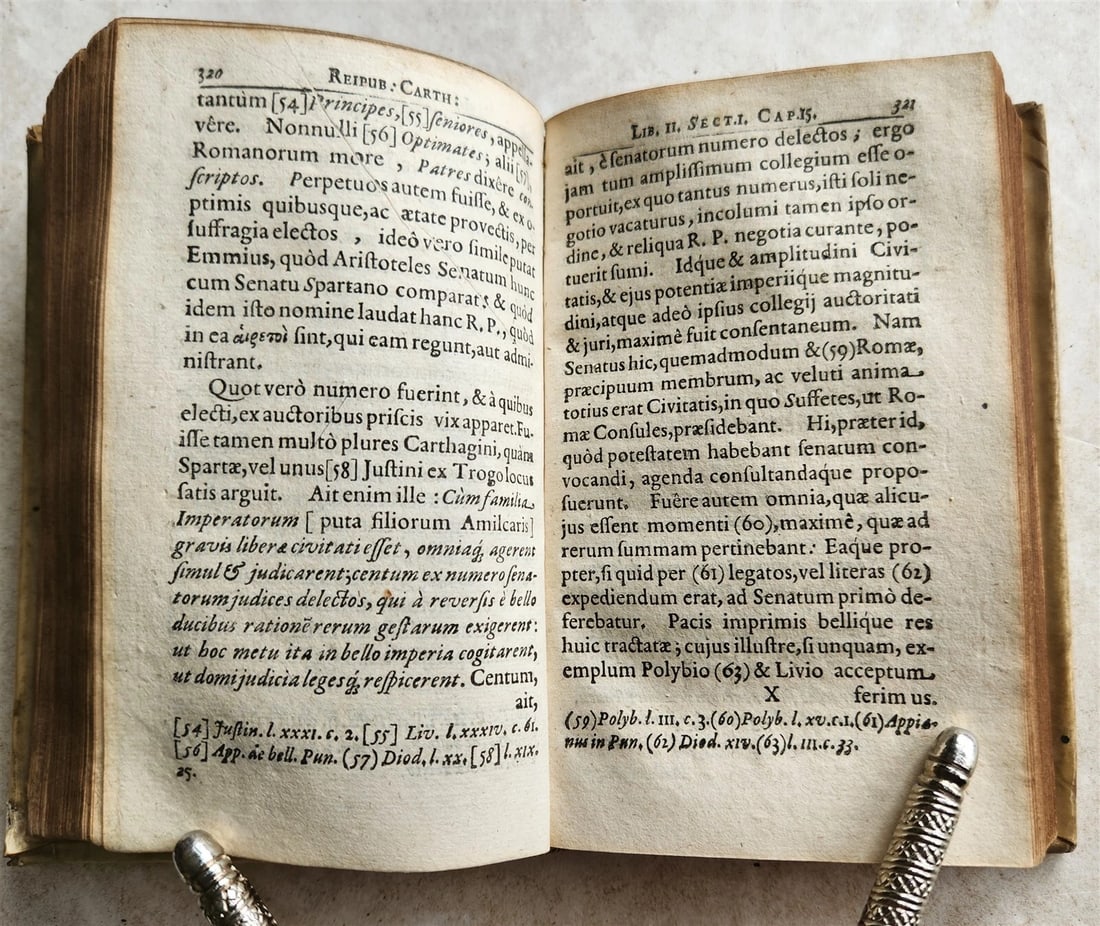 320
REIPUB: CARTH:
tantùm [54] Principes, [55] seniores, appella-
vêre. Nonnulli [56] Optimates; alii [57],
Romanorum more, Patres dixêre con-
scriptos. Perpetuos autem fuisse, & ex o-
ptimis quibusque, ac ætate provectis, per
suffragia electos, ideò vero simile putat
Emmius, quòd Aristoteles Senatum hunc
cum Senatu Spartano comparat; & quòd
idem isto nomine laudat hanc R. P., quòd
in ea sint, qui eam regunt, aut admi-
nistrant.
Quot verò numero fuerint, & à quibus
electi, ex auctoribus priscis vix apparet. Fu-
isse tamen multò plures Carthagini, quàm
Spartæ, vel unus [58] Justini ex Trogo locus
satis arguit. Ait enim ille: Cùm familia
Imperatorum [ puta filiorum Amilcaris]
gravis liberæ civitati esset, omniaq́; agerent
simul & judicarent; centum ex numero sena-
torum judices delectos, qui à reversis è bello
ducibus rationē rerum gestarum exigerent:
ut hoc metu ita in bello imperia cogitarent,
ut domi judicia legesq́; respicerent. Centum,
ait,
[54] Justin. l. XXXI. c. 2. [55] Liv. l. XXXIV. c. 61.
[56] App. de bell. Pun. (57) Diod. l. XX. [58] l. XIX.
25.
LIB. II. SECT. I. CAP. 15. 321
ait, è senatorum numero delectos; ergo
jam tum amplissimum collegium esse o-
portuit, ex quo tantus numerus, isti soli ne-
gotio vacaturus, incolumi tamen ipso or-
dine, & reliqua R. P. negotia curante, po-
tuerit sumi. Idque & amplitudini Civi-
tatis, & ejus potentiæ imperiique magnitu-
dini, atque adeò ipsius collegij auctoritati
& juri, maximè fuit consentaneum. Nam
Senatus hic, quemadmodum & (59) Romæ,
præcipuum membrum, ac veluti anima
totius erat Civitatis, in quo Suffetes, ut Ro-
mæ Consules, præsidebant. Hi, præter id,
quòd potestatem habebant senatum con-
vocandi, agenda consultandaque propo-
suerunt. Fuêre autem omnia, quæ alicu-
jus essent momenti (60), maximè, quæ ad
rerum summam pertinebant: Eaque pro-
pter, si quid per (61) legatos, vel literas (62)
expediendum erat, ad Senatum primò de-
ferebatur. Pacis imprimis bellique res
huic tractatæ; cujus illustre, si unquam, ex-
emplum Polybio (63) & Livio acceptum
X ferimus.
(59) Polyb. l. III. c. 3. (60) Polyb. l. XV. c. 1. (61) Appia-
nus in Pun. (62) Diod. XIV. (63) l. III. c. 33.